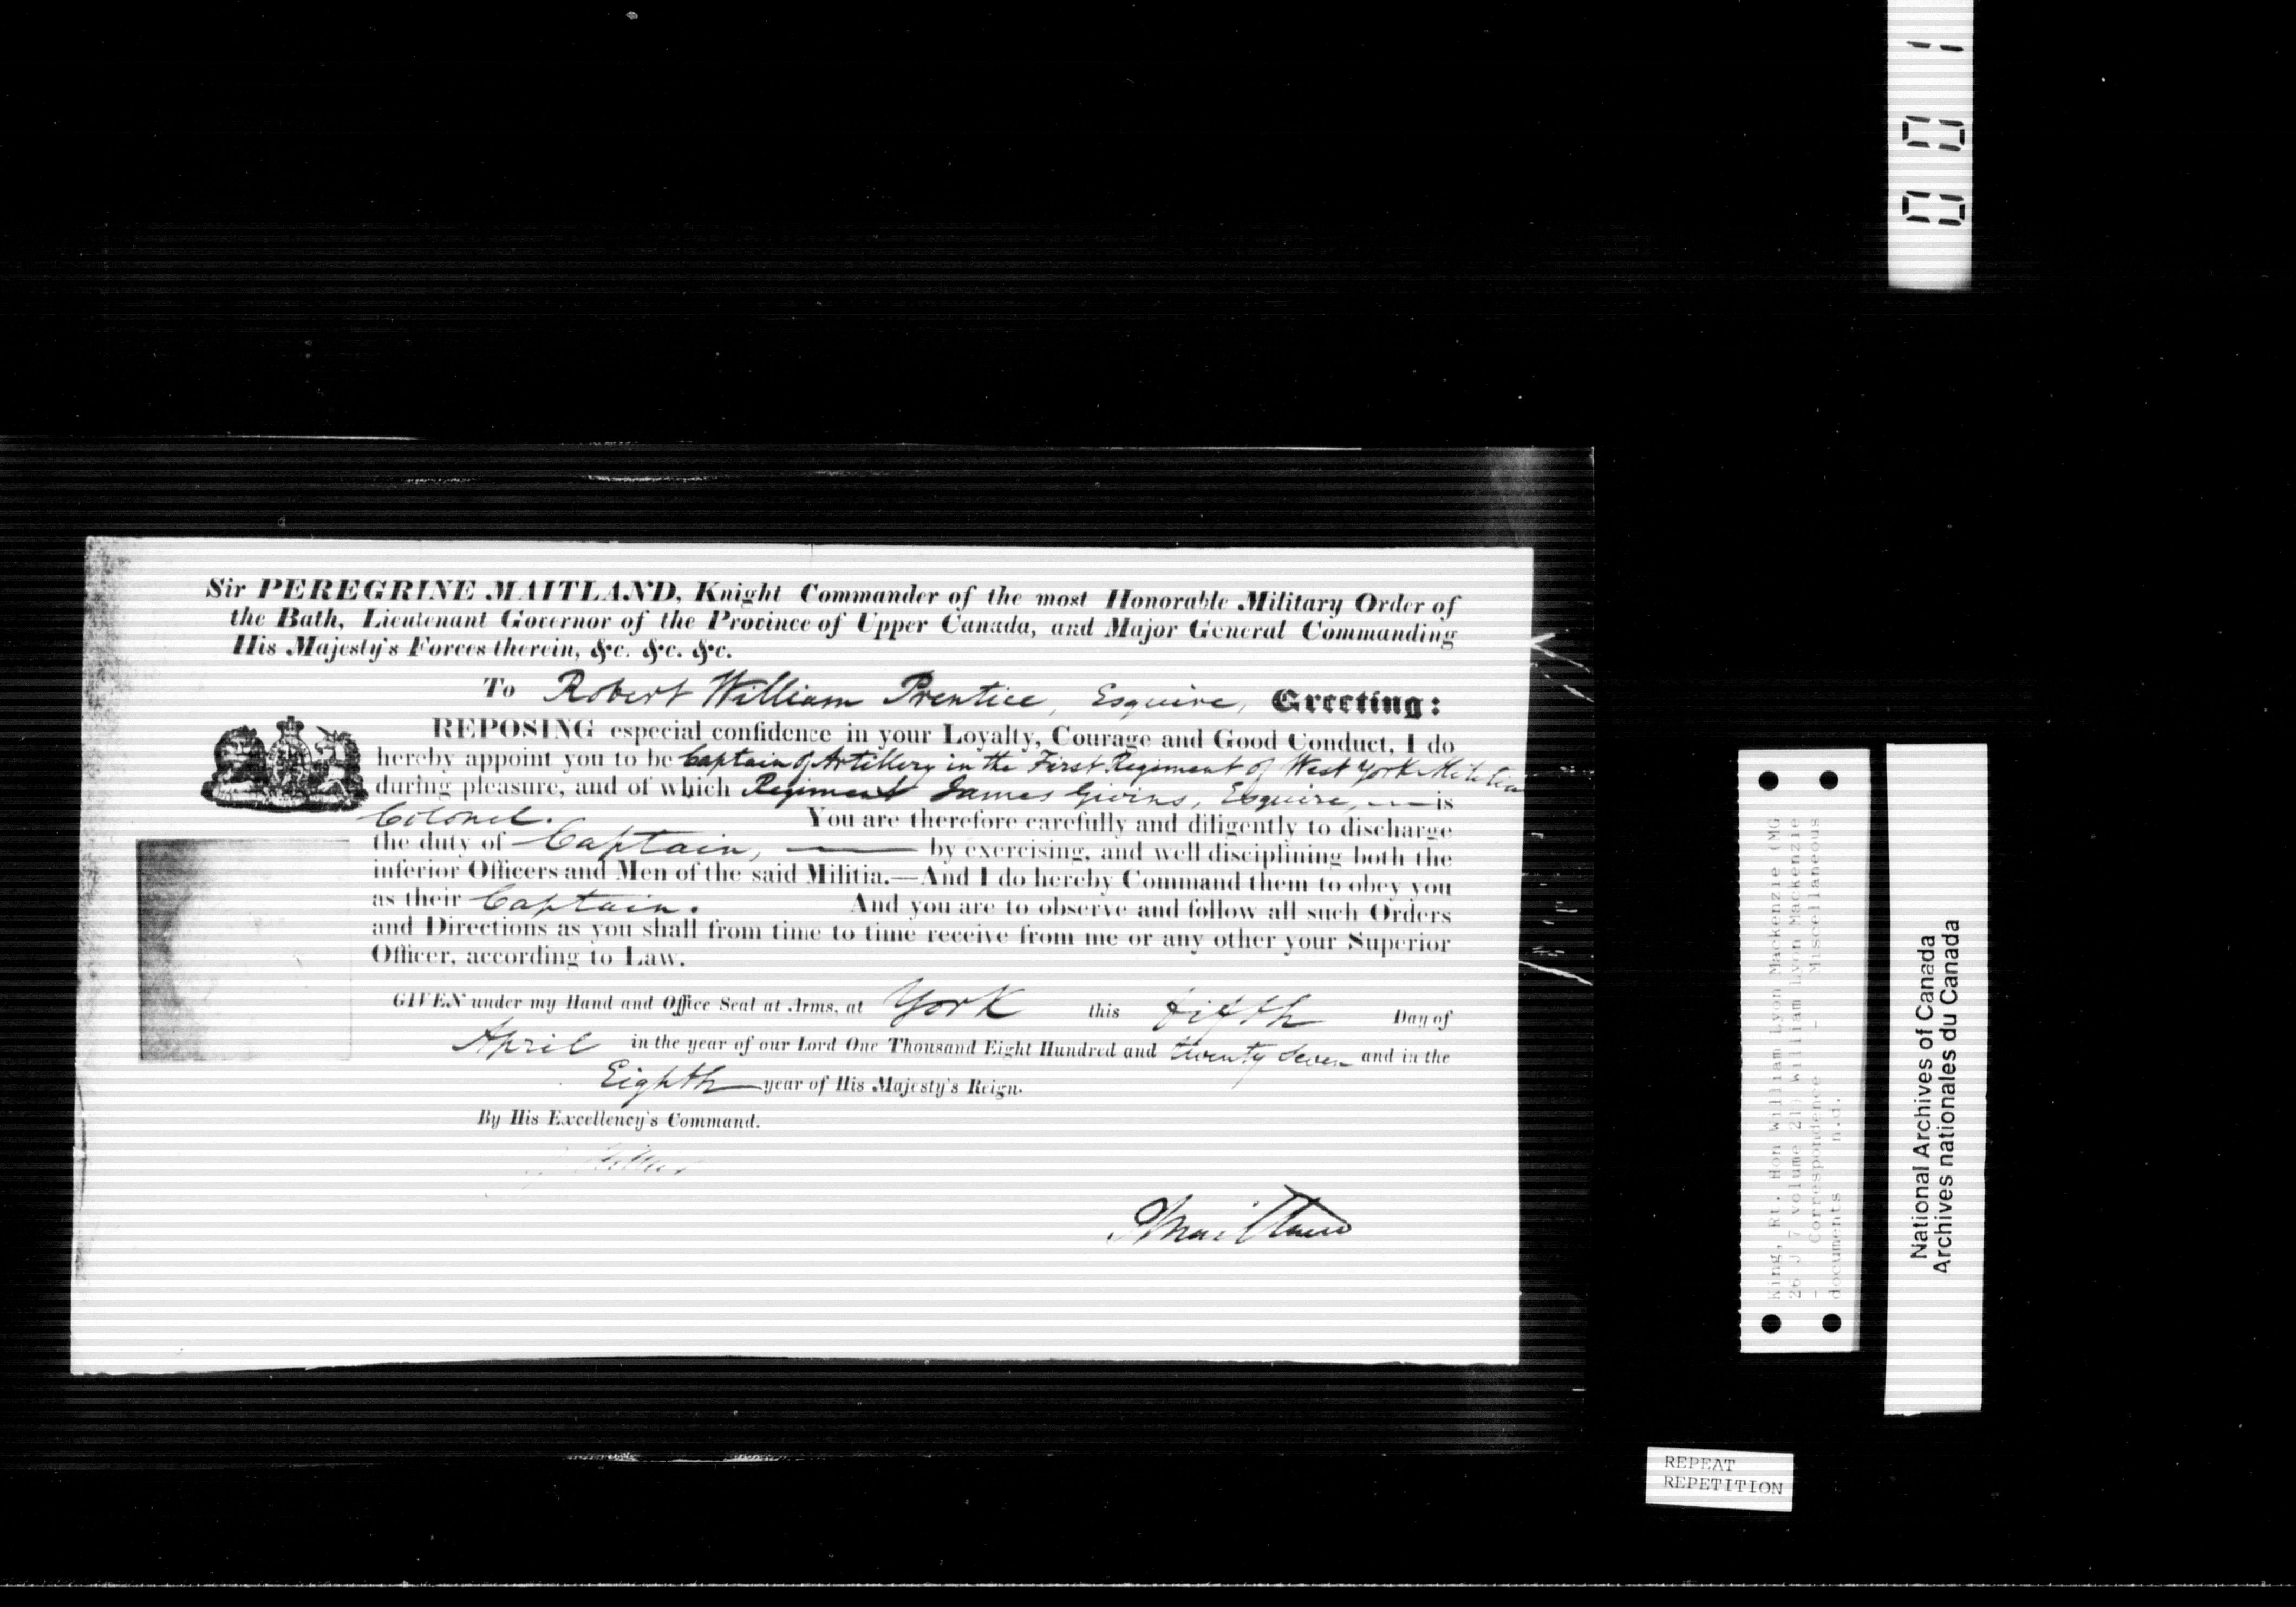 Sir PEREGRINE MAITLAND, Knight Commander of the most Honorable Military Order of
the Bath, Lieutenant Governor of the Province of Upper Canada, and Major General Commanding
His Majesty's Forces therein, &c. &c. &c.
To Robert William Prentice, Esquire, Greeting:
REPOSING especial confidence in your Loyalty, Courage and Good Conduct, I do
hereby appoint you to be Captain of Artillery in the First Regiment of West York Militia
during pleasure, and of which Regiment James Givins, Esquire, — is
Colonel. You are therefore carefully and diligently to discharge
the duty of Captain, — by exercising, and well disciplining both the
inferior Officers and Men of the said Militia.—And I do hereby Command them to obey you
as their Captain. And you are to observe and follow all such Orders
and Directions as you shall from time to time receive from me or any other your Superior
Officer, according to Law.
GIVEN under my Hand and Office Seal at Arms, at York this fifth Day of
April in the year of our Lord One Thousand Eight Hundred and twenty seven and in the
Eighth year of His Majesty's Reign.
By His Excellency's Command.
P Maitland
001
King, Rt. Hon William Lyon Mackenzie (MG
26 J 7 volume 21) William Lyon Mackenzie
- Correspondence - Miscellaneous
documents n.d.
National Archives of Canada
Archives nationales du Canada
REPEAT
REPETITION